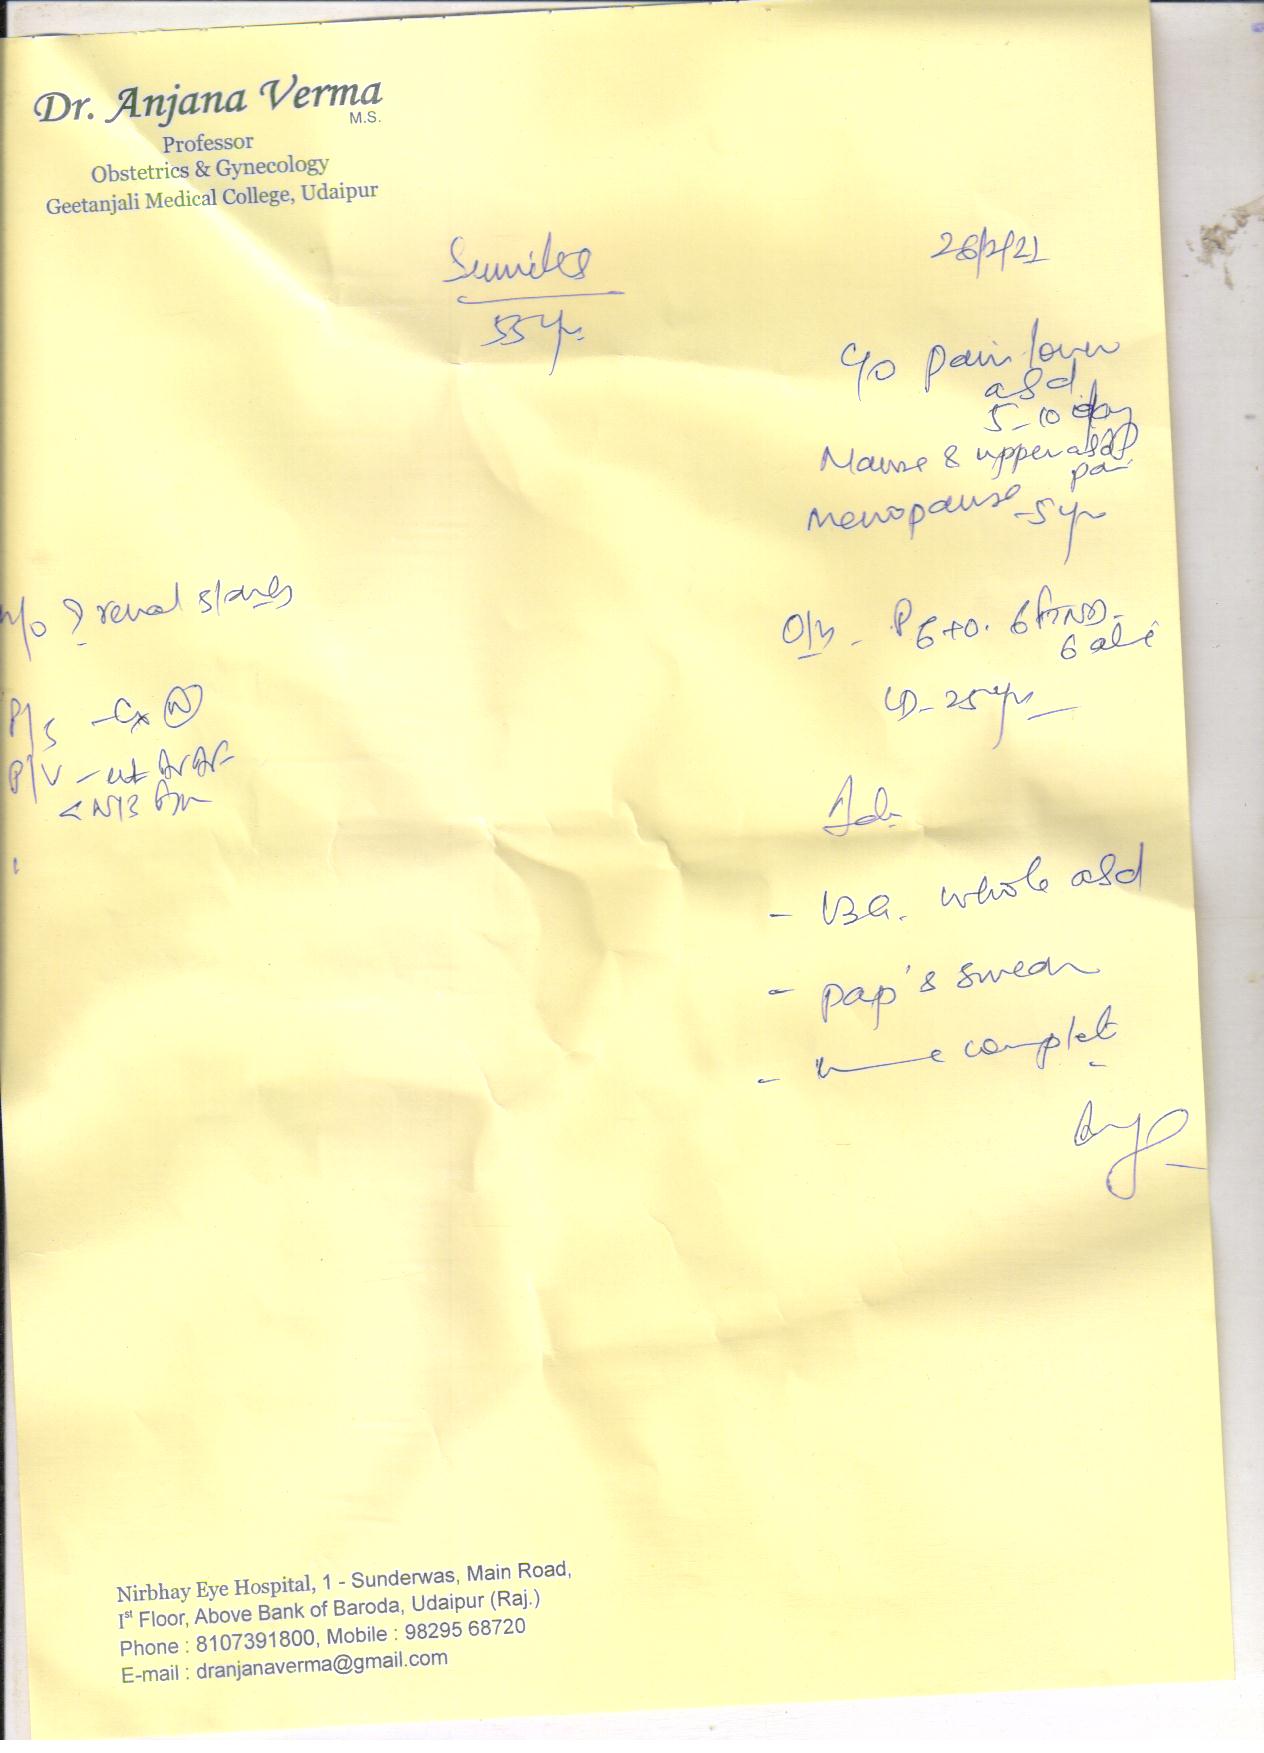 Dr. Anjana Verma
M.S.
Professor
Obstetrics & Gynecology
Geetanjali Medical College, Udaipur
55 yr.
C/o pain lower
abd.
5-10 day
& upper abd
pain
Menopause - 5 yr
H/o ? renal stones
O/H - P6+0. 6 FTND -
6 alive
LD - 25 yrs
P/S - Cx (N)
P/V - ut AVAF
Adv.
- USG. whole abd
- pap's smear
- urine complete
Nirbhay Eye Hospital, 1 - Sunderwas, Main Road,
Ist Floor, Above Bank of Baroda, Udaipur (Raj.)
Phone : 8107391800, Mobile : 98295 68720
E-mail : dranjanaverma@gmail.com